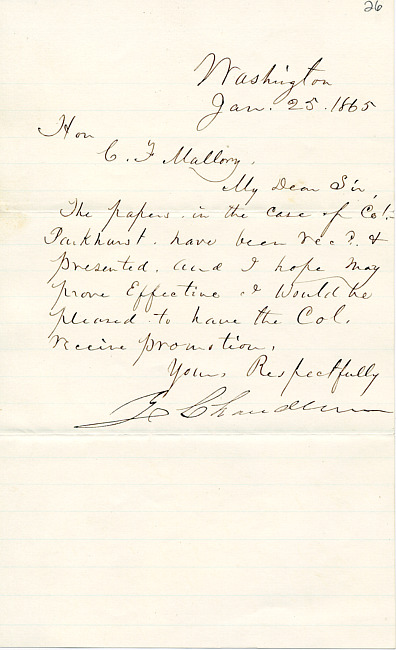 26
Washington
Jan. 25. 1865
Hon
C. F Mallory.
My Dear Sir,
The papers. in the case of Col.
Parkhurst. have been rec?. &
presented. and I hope may
prove Effective. I would be
pleased to have the Col.
receive promotion.
Yours Respectfully
Z Chandler